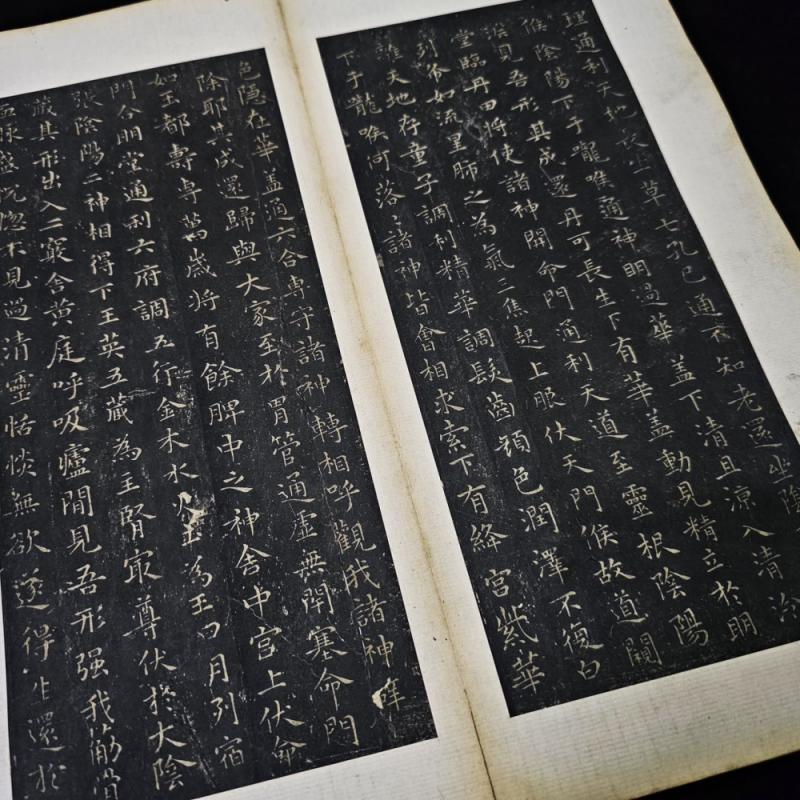 理通利天地長生草七孔已通不知老還坐陰
候陰陽下于龍喉通神明過華蓋下清且涼入清泠
淵見吾形其成還丹可長生下有華蓋動見精立於明
堂臨丹田將使諸神開命門通利天道至靈根陰陽
列布如流星肺之為氣三焦起上服伏天門候故道闚
離天地存童子調利精華調髮齒顏色潤澤不復白
下于龍喉何落〻諸神皆會相求索下有絳宮紫華
色隱在華蓋通六合專守諸神轉相呼觀我諸神辟
除耶其成還歸與大家至於胃管通虛無閉塞命門
如玉都壽專萬歲將有餘脾中之神舍中宮上伏命
門合明堂通利六府調五行金木水火土為王日月列宿
張陰陽二神相得下玉英五藏為主腎冣尊伏於大陰
藏其形出入二竅舍黃庭呼吸廬間見吾形强我筋骨
血脉盛恍惚不見過清靈恬惔無欲遂得生還於